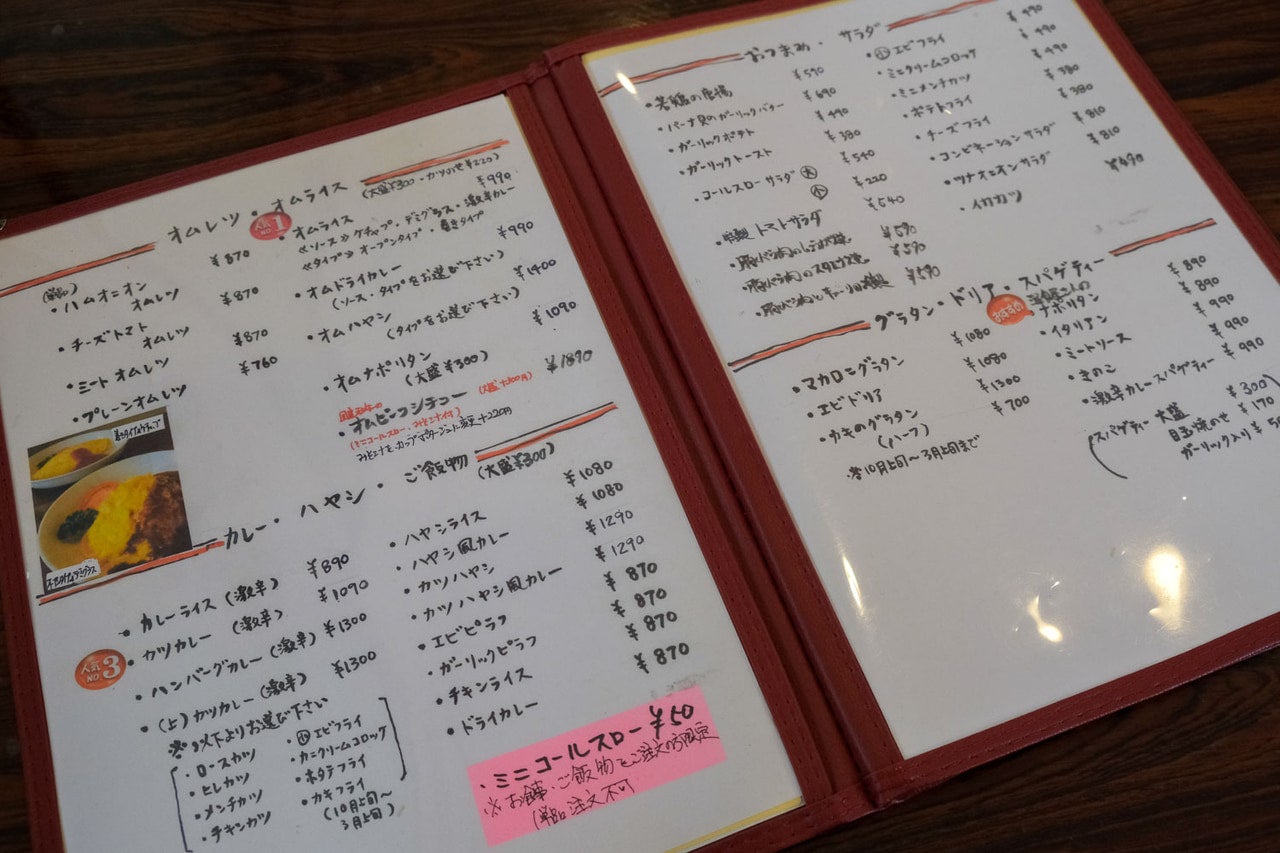 オムレツ・オムライス
(大盛¥300・カツのせ¥220)
(単品)
・ハムオニオン
オムレツ ¥870
・チーズトマト
オムレツ ¥870
・ミートオムレツ ¥870
・プレーンオムレツ ¥760
人気NO1
・オムライス ¥990
≪ソース≫ケチャップ・デミグラス・激辛カレー
≪タイプ≫オープンタイプ・巻きタイプ
・オムドライカレー ¥990
(ソース・タイプをお選び下さい)
・オムハヤシ ¥1400
(タイプをお選び下さい)
・オムナポリタン ¥1090
(大盛¥300)
・オムビーフシチュー ¥1890
(ミニコールスロー・みそとナイ付)
カレー・ハヤシ・ご飯物
(大盛¥300)
・カレーライス(激辛) ¥890
・カツカレー(激辛) ¥1090
人気NO3
・ハンバーグカレー(激辛) ¥1300
・(上)カツカレー(激辛) ¥1300
※以下よりお選び下さい
・ロースカツ
・ヒレカツ
・メンチカツ
・チキンカツ
・小エビフライ
・カニクリームコロッケ
・ホタテフライ
・カキフライ
(10月上旬〜
3月上旬)
・ハヤシライス ¥1080
・ハヤシ風カレー ¥1080
・カツハヤシ ¥1290
・カツハヤシ風カレー ¥1290
・エビピラフ ¥870
・ガーリックピラフ ¥870
・チキンライス ¥870
・ドライカレー ¥870
・ミニコールスロー ¥50
※お食事・ご飯物とご注文の方限定
(単品注文不可
おつまみ・サラダ
・若鶏の唐揚 ¥590
・パーナ貝のガーリックバター ¥690
・ガーリックポテト ¥490
・ガーリックトースト ¥380
・コールスローサラダ 大 ¥540
小 ¥220
・トマトサラダ ¥540
¥590
¥590
¥590
・小エビフライ ¥490
・ミニクリームコロッケ ¥490
・ミニメンチカツ ¥490
・ポテトフライ ¥380
・チーズフライ ¥380
・コンビネーションサラダ ¥810
・ツナスとオニオンサラダ ¥810
・イカカツ ¥490
グラタン・ドリア・スパゲティー
・マカロニグラタン ¥1080
・エビドリア ¥1080
・カキのグラタン ¥1300
(ハーフ) ¥700
※10月上旬〜3月上旬まで
おすすめ
ナポリタン ¥890
・イタリアン ¥890
・ミートソース ¥990
・きのこ ¥990
・激辛カレースパゲティー ¥990
スパゲティー 大盛 ¥300
目玉焼のせ ¥170
ガーリック入り